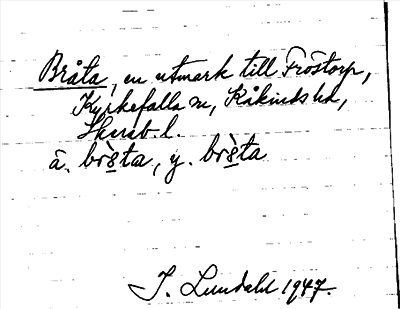 Bråta, en utmark till Fröstorp,
Kyrkefalla sn, Kåkinds hd,
Skarab. l.
ä. brɔ̀sta, y. brɔ̀sta
I. Lundahl 1947.